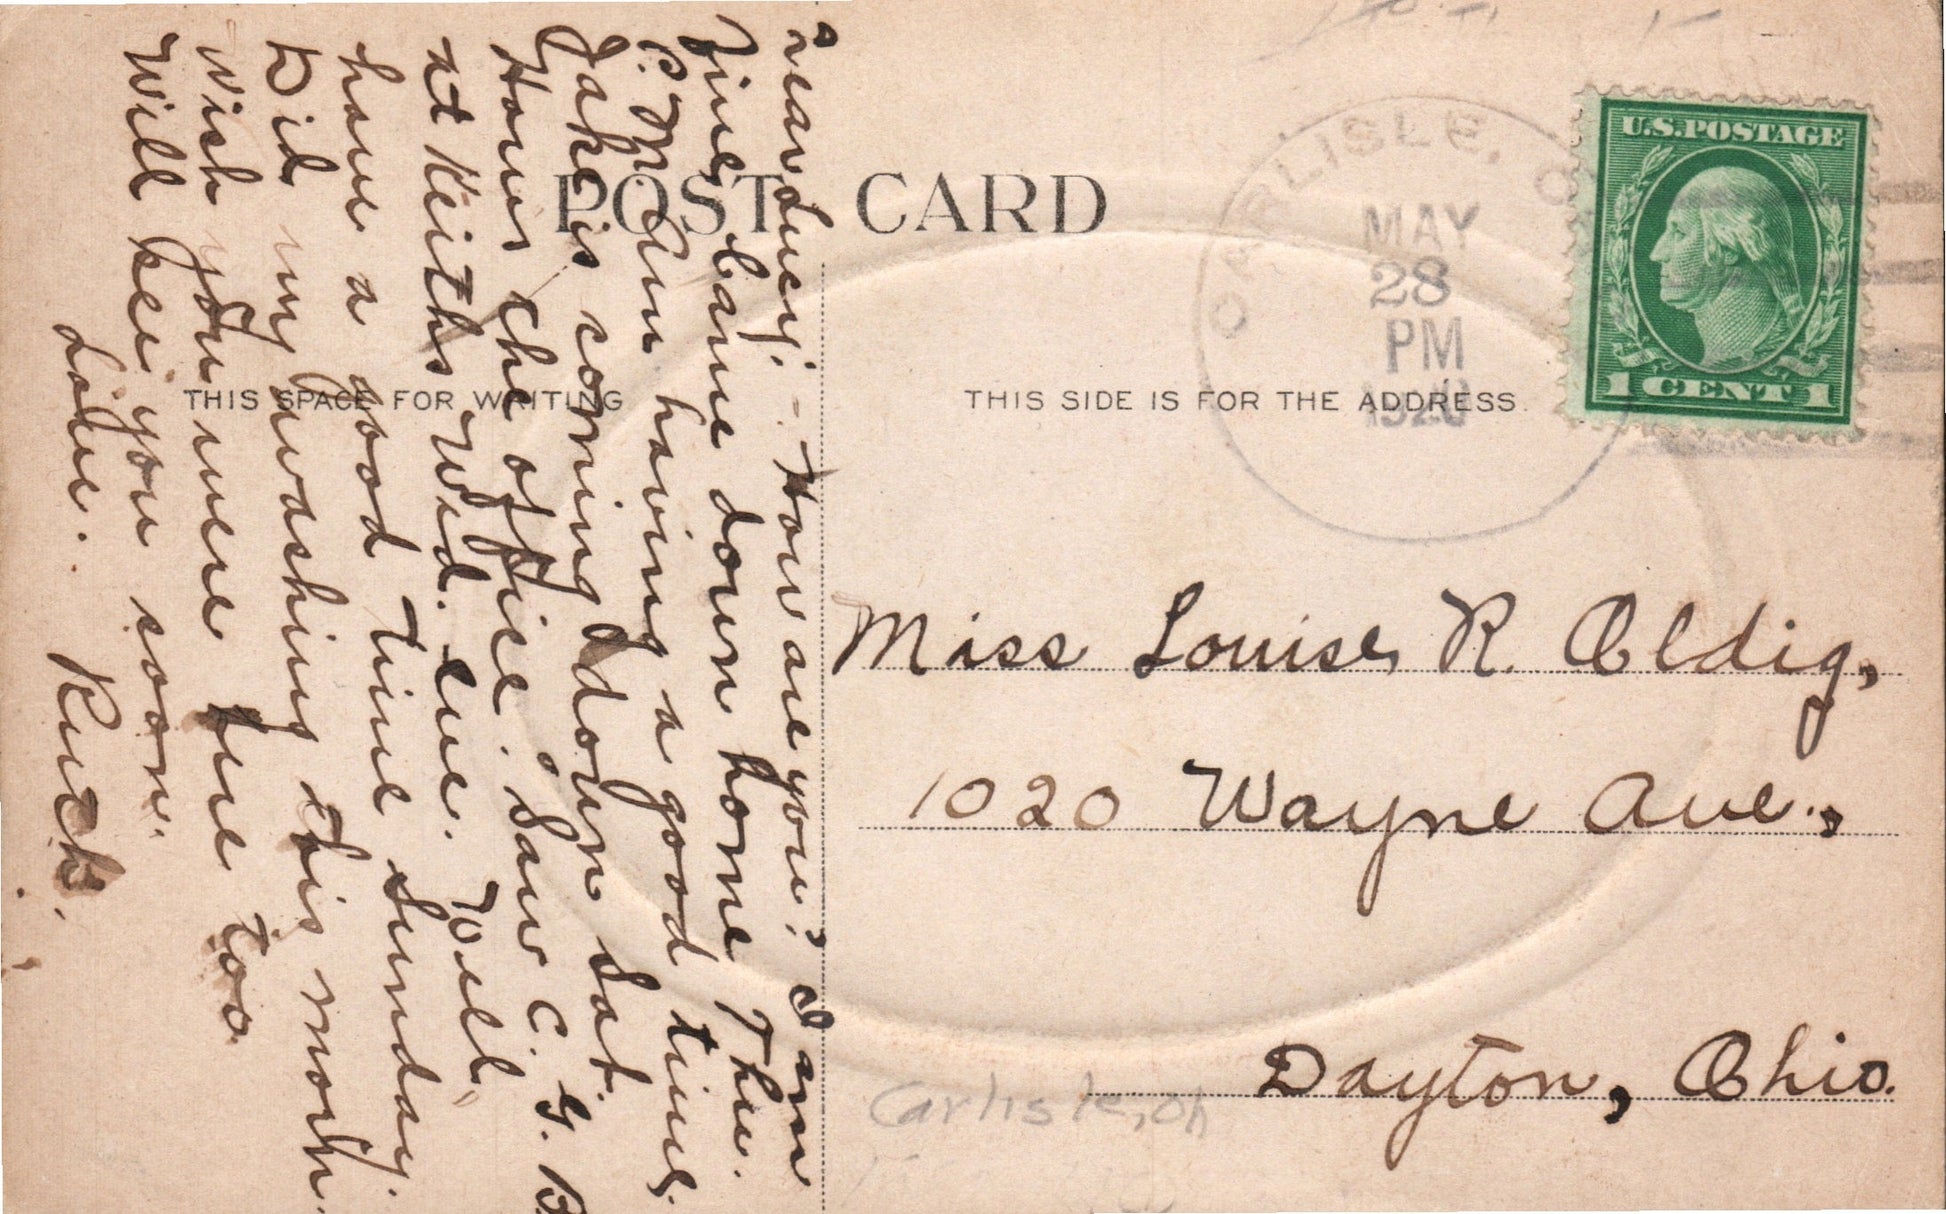 POST CARD
THIS SPACE FOR WRITING
THIS SIDE IS FOR THE ADDRESS
U.S. POSTAGE
1 CENT 1
CARLISLE, O
MAY
28
PM
1920
Dear Lucy:- How are you? I am
fine, Came down home Thu.
P.M. Am having a good time.
Jake is coming down Sat.
How's the office. Saw C. G. B.
at Keiths Wed. eve. Will
have a good time Sunday.
Did my washing this morn.
Wish you were here too
Will see you soon.
Love. Ruth.
Miss Louise R. Oldig,
1020 Wayne Ave.,
Dayton, Ohio.
Carlisle, Oh